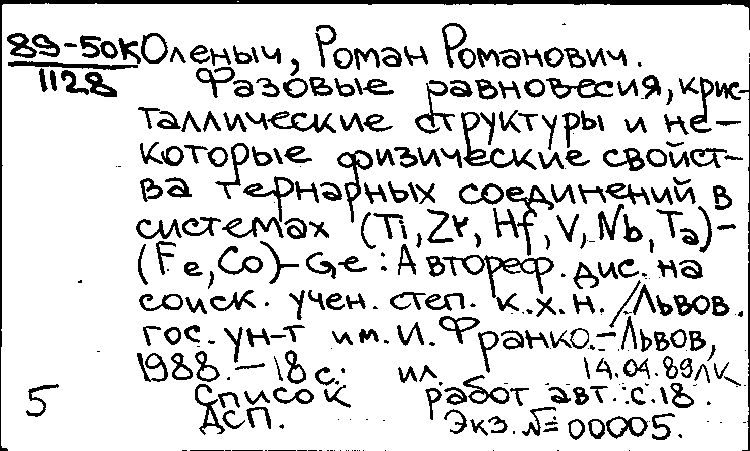 89-50К Оленыч, Роман Романович.
1128 Фазовые равновесия, крис-
таллические структуры и не-
которые физические свойст-
ва тернарных соединений в
системах (Ti, Zr, Hf, V, Nb, Ta)-
(Fe, Co)-Ge: Автореф. дис. на
соиск. учен. степ. к.х.н. / Львов.
гос. ун-т им. И. Франко.-Львов,
1988. - 18 с.: ил. 14.04.89 ЛК
Список работ авт.: с. 18.
5 ДСП. Экз. № 00005.